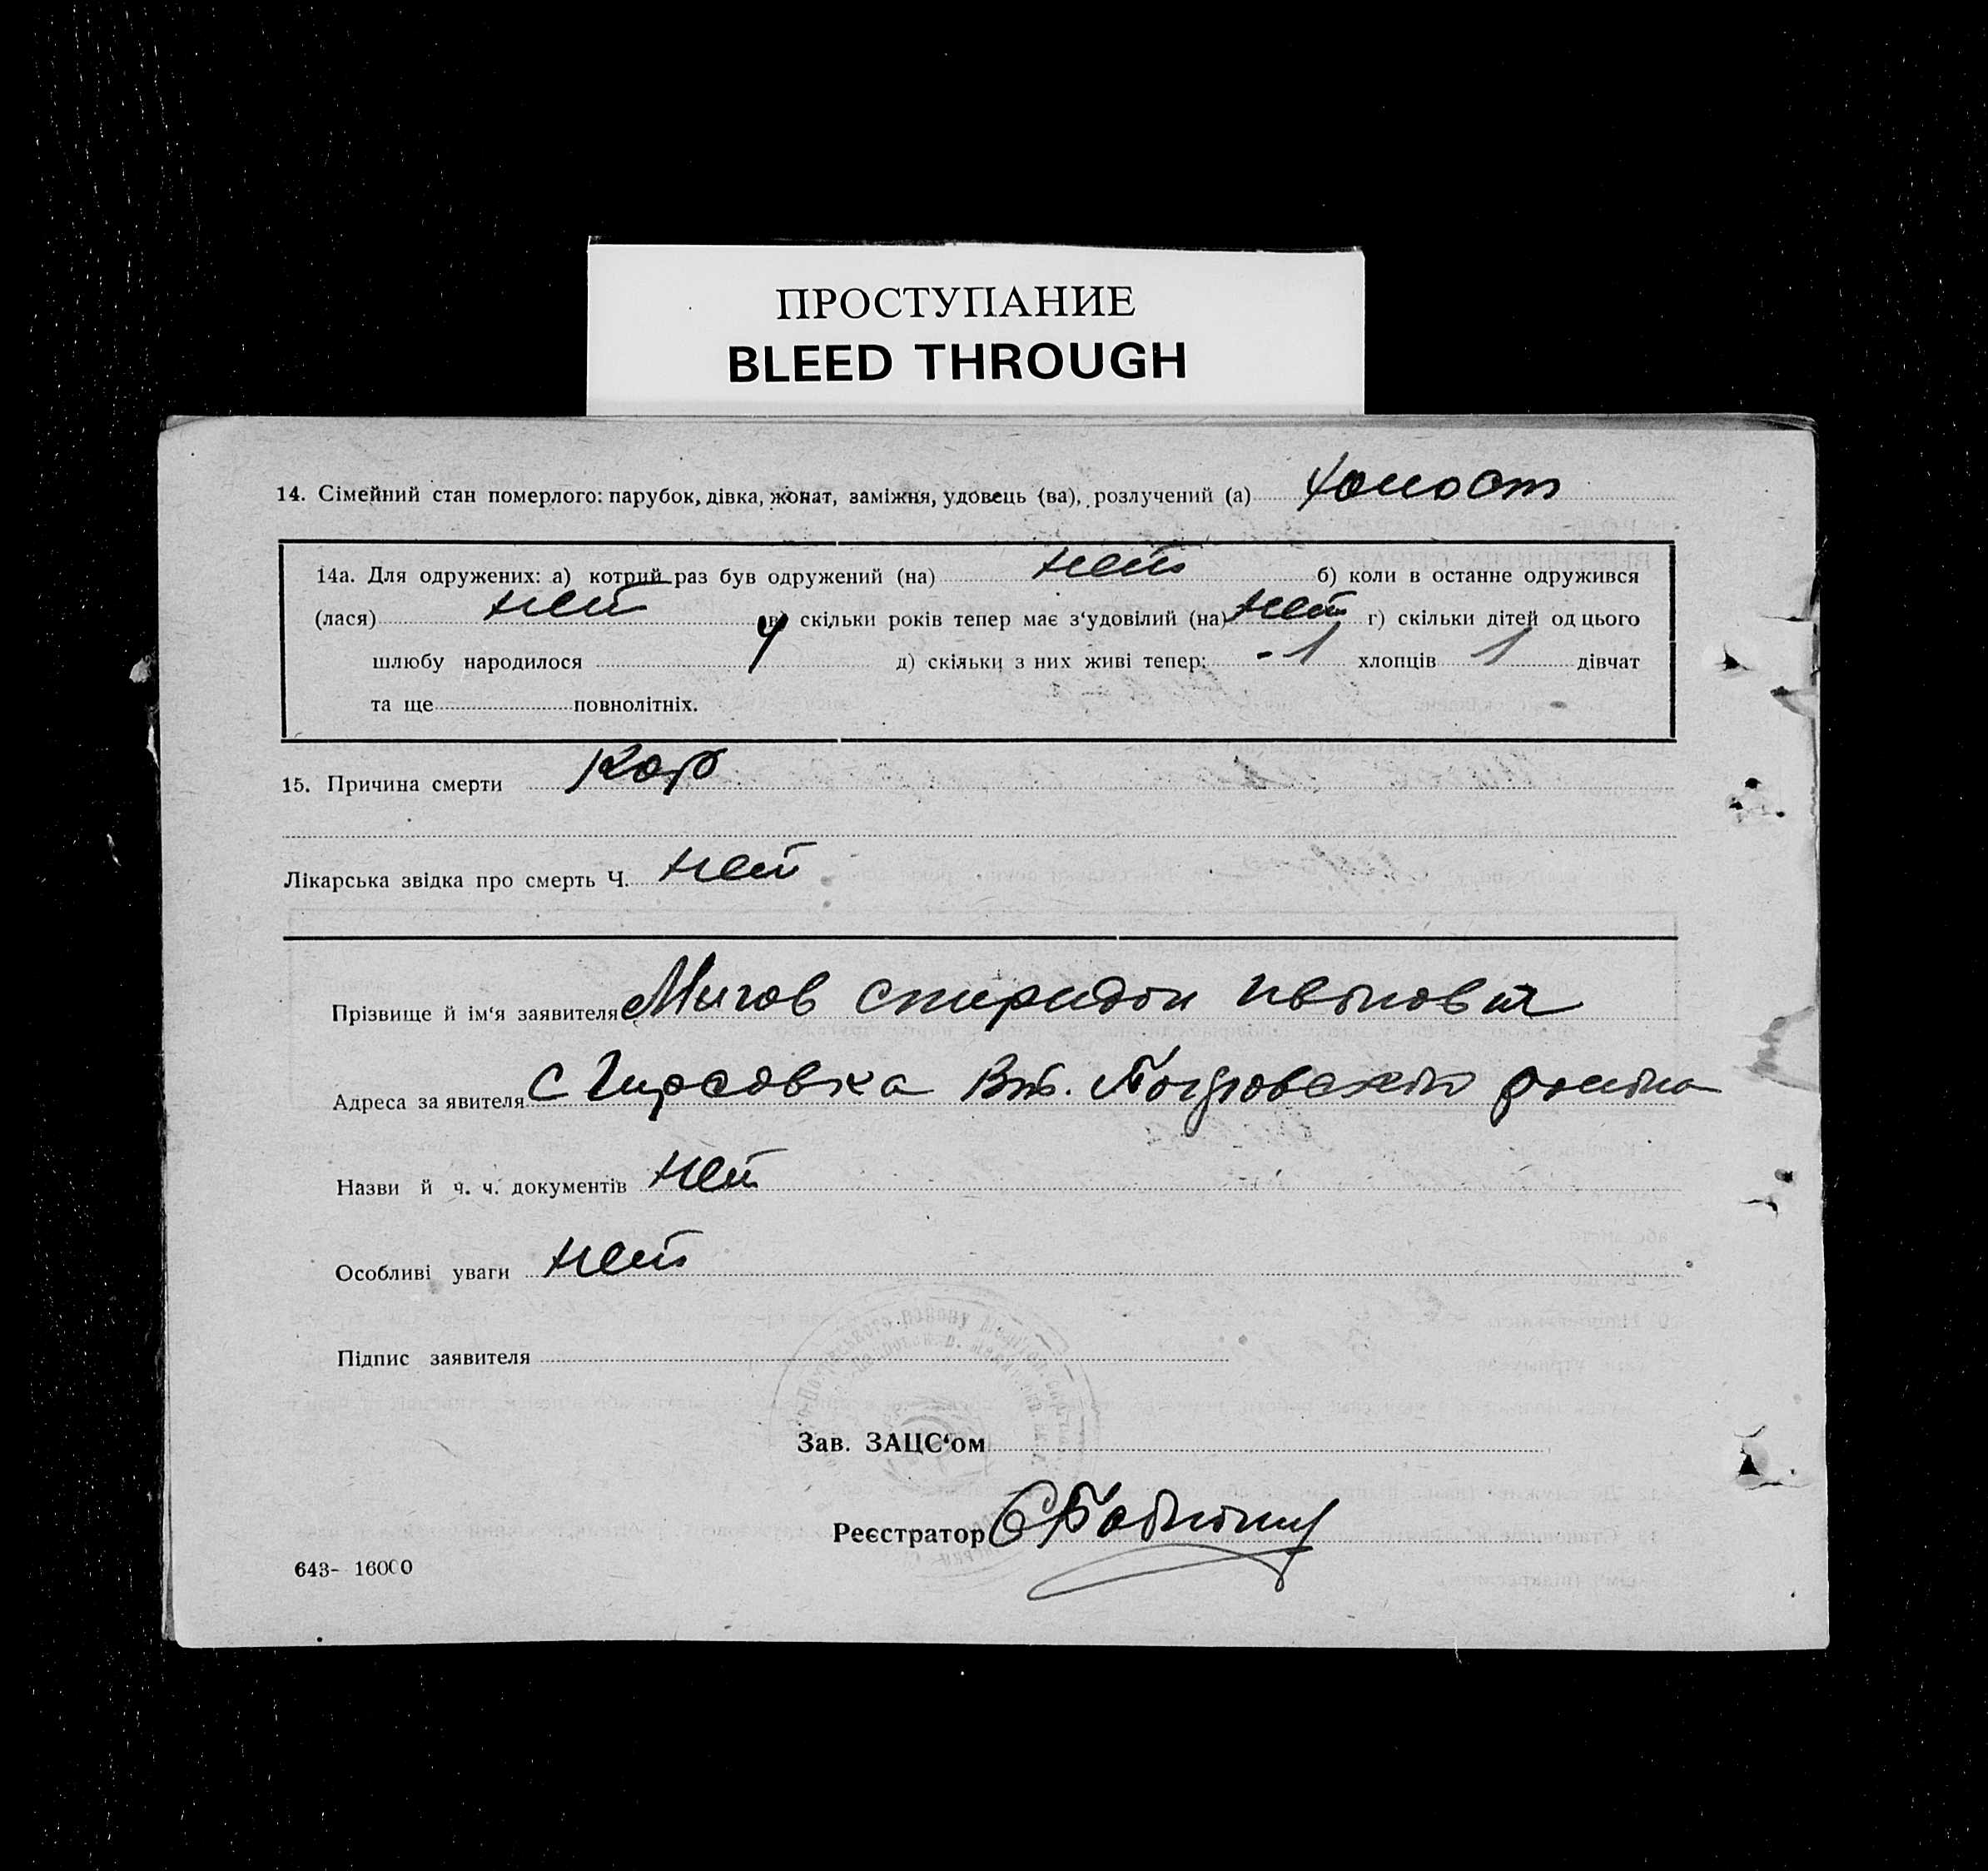 ПРОСТУПАНИЕ
BLEED THROUGH
14. Сімейний стан померлого: парубок, дівка, жонат, заміжня, удовець (ва), розлучений (а) холост
14а. Для одружених: а) котрий раз був одружений (на) нет б) коли в останне одружився
(лася) нет в) скільки років тепер має з‘удовілий (на) нет г) скільки дітей од цього
шлюбу народилося 4 д) скільки з них живі тепер: - 1 хлопців 1 дівчат
та ще повнолітніх.
15. Причина смерти Кор
Лікарська звідка про смерть Ч. нет
Прізвище й ім‘я заявителя Мигов Спиридон Иванович
Адреса заявителя с Гирсовка района
Назви й ч. ч. документів нет
Особливі уваги нет
Підпис заявителя
Зав. ЗАЦС‘ом
Реєстратор
643- 16000